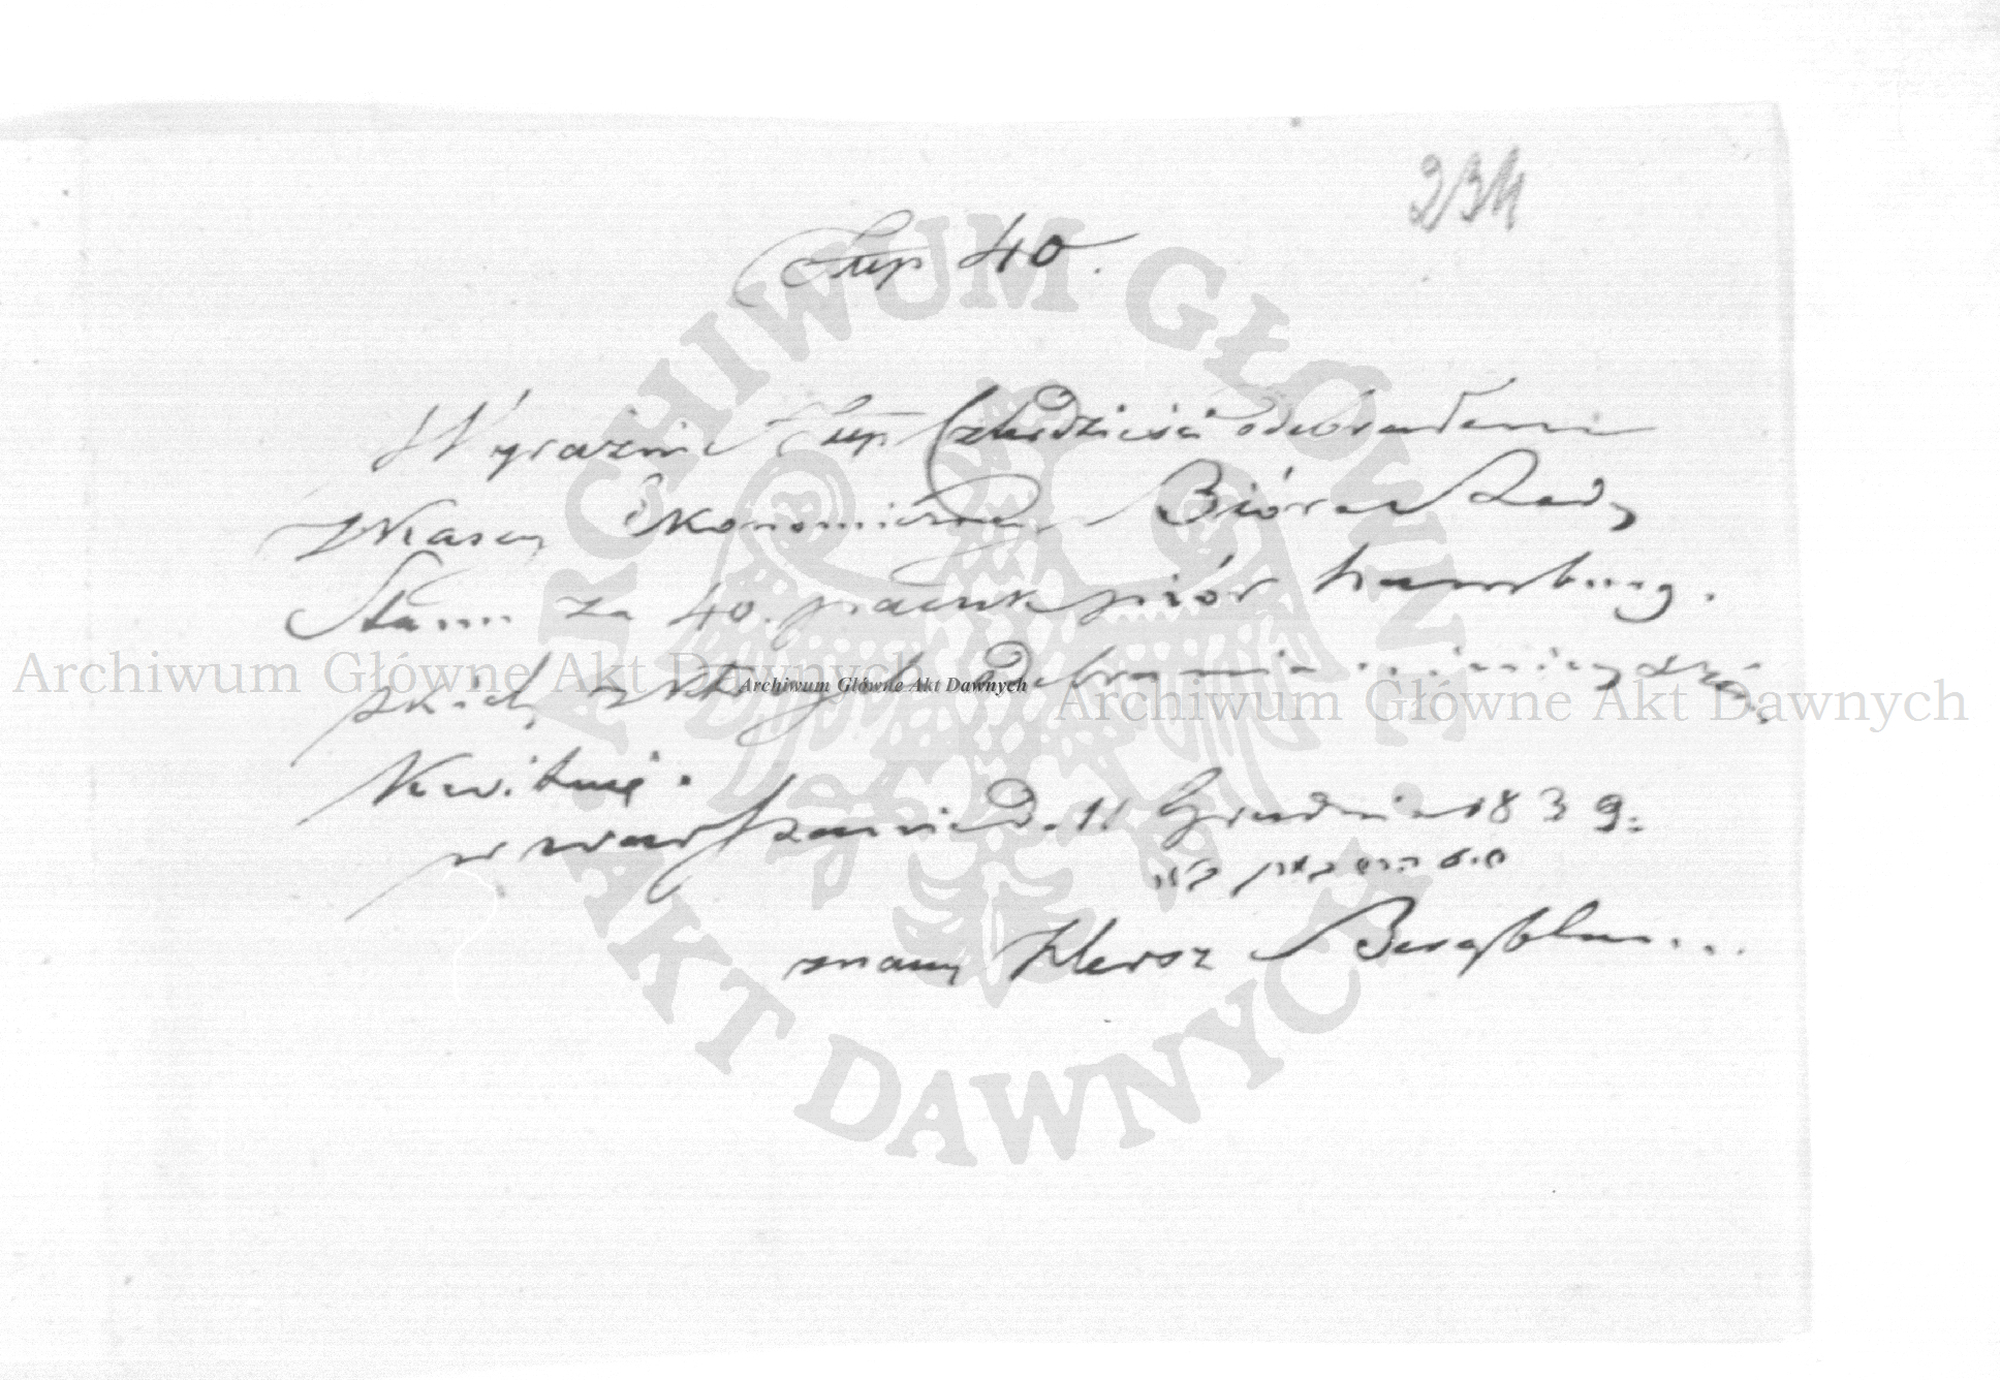 234
Złtp 40.
Wyraznie Złtp Czterdziesci odebrałem
z Kassy Ekonomiczney Biora Rady
Stanu za 40. paczek piór hamburg.
skich z których odebrania
Kwituię.
w warszawie d. 11 Grudnia 1839.
znany Hersz
ARCHIWUM GŁÓWNE
AKT DAWNYCH
Archiwum Główne Akt Dawnych
Archiwum Główne Akt Dawnych
Archiwum Główne Akt Dawnych